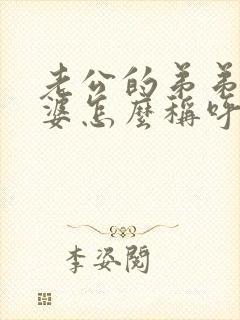 老公的弟弟
婆怎麼稱呼
李姿閱